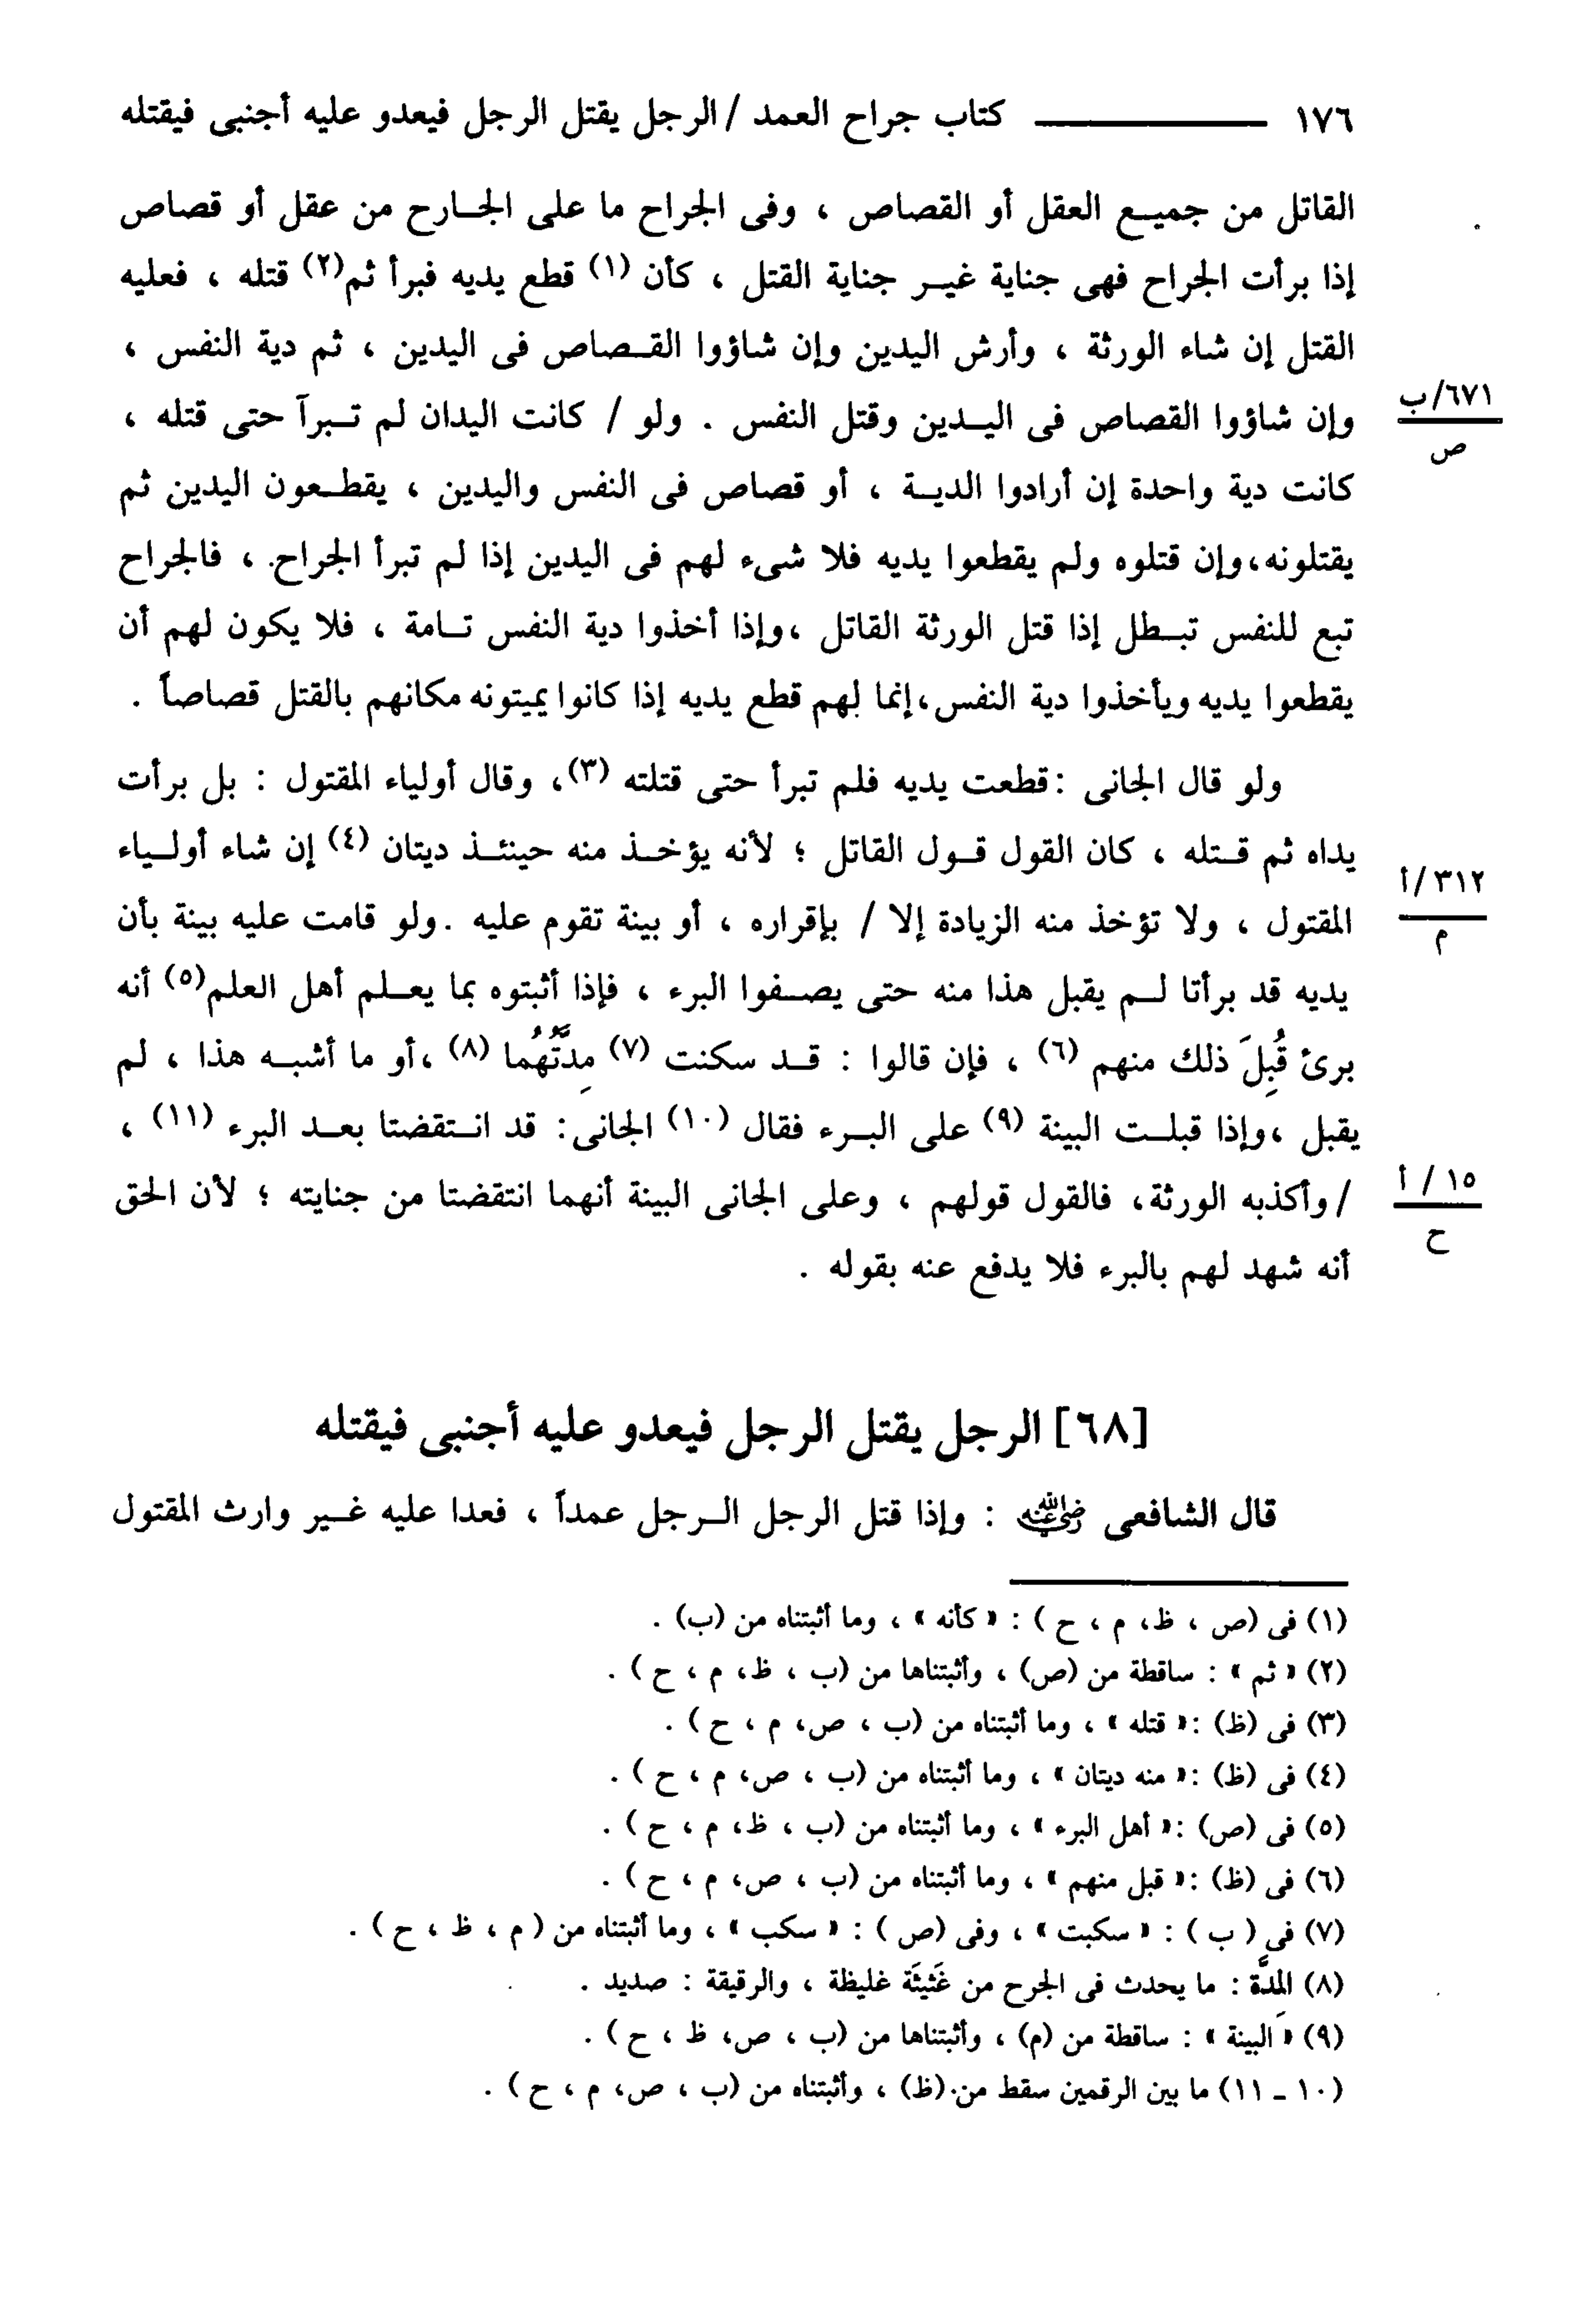 ١٧٦ ــــــــــ كتاب جراح العمد / الرجل يقتل الرجل فيعدو عليه أجنبى فيقتله
القاتل من جميع العقل أو القصاص ، وفى الجراح ما على الجارح من عقل أو قصاص
إذا برأت الجراح فهى جناية غير جناية القتل ، كأن (١) قطع يديه فبرأ ثم(٢) قتله ، فعليه
القتل إن شاء الورثة ، وأرش اليدين وإن شاؤوا القصاص فى اليدين ، ثم دية النفس ،
وإن شاؤوا القصاص فى اليدين وقتل النفس . ولو / كانت اليدان لم تبرآ حتى قتله ،
٦٧١/ب
ص
كانت دية واحدة إن أرادوا الدية ، أو قصاص فى النفس واليدين ، يقطعون اليدين ثم
يقتلونه،وإن قتلوه ولم يقطعوا يديه فلا شىء لهم فى اليدين إذا لم تبرأ الجراح ، فالجراح
تبع للنفس تبطل إذا قتل الورثة القاتل ،وإذا أخذوا دية النفس تامة ، فلا يكون لهم أن
يقطعوا يديه ويأخذوا دية النفس،إنما لهم قطع يديه إذا كانوا يميتونه مكانهم بالقتل قصاصاً .
ولو قال الجانى : قطعت يديه فلم تبرأ حتى قتلته (٣)، وقال أولياء المقتول : بل برأت
يداه ثم قتله ، كان القول قول القاتل ؛ لأنه يؤخذ منه حينئذ ديتان (٤) إن شاء أولياء
٣١٢/أ
م
المقتول ، ولا تؤخذ منه الزيادة إلا / بإقراره ، أو بينة تقوم عليه .ولو قامت عليه بينة بأن
يديه قد برأتا لم يقبل هذا منه حتى يصفوا البرء ، فإذا أثبتوه بما يعلم أهل العلم(٥) أنه
برئ قُبِلَ ذلك منهم (٦) ، فإن قالوا : قد سكنت (٧) مِدَّتُهُما (٨) ،أو ما أشبه هذا ، لم
يقبل ،وإذا قبلت البينة (٩) على البرء فقال (١٠) الجانى: قد انتقضتا بعد البرء (١١) ،
/ وأكذبه الورثة، فالقول قولهم ، وعلى الجانى البينة أنهما انتقضتا من جنايته ؛ لأن الحق
١٥ / أ
ح
أنه شهد لهم بالبرء فلا يدفع عنه بقوله .
[٦٨] الرجل يقتل الرجل فيعدو عليه أجنبى فيقتله
قال الشافعى رضي الله عنه : وإذا قتل الرجل الرجل عمداً ، فعدا عليه غير وارث المقتول
(١) فى (ص ، ظ، م ، ح ) : « كأنه » ، وما أثبتناه من (ب) .
(٢) « ثم » : ساقطة من (ص) ، وأثبتناها من (ب ، ظ، م ، ح ) .
(٣) فى (ظ) :« قتله » ، وما أثبتناه من (ب ، ص، م ، ح ) .
(٤) فى (ظ) :« منه ديتان » ، وما أثبتناه من (ب ، ص، م ، ح ) .
(٥) فى (ص) :« أهل البرء » ، وما أثبتناه من (ب ، ظ، م ، ح ) .
(٦) فى (ظ) :« قبل منهم » ، وما أثبتناه من (ب ، ص، م ، ح ) .
(٧) فى ( ب ) : « سكبت » ، وفى (ص ) : « سكب » ، وما أثبتناه من ( م ، ظ ، ح ) .
(٨) المِدَّة : ما يحدث فى الجرح من غَثِيثَة غليظة ، والرقيقة : صديد .
(٩) « البينة » : ساقطة من (م) ، وأثبتناها من (ب ، ص، ظ ، ح ) .
(١٠ ـ ١١) ما بين الرقمين سقط من (ظ) ، وأثبتناه من (ب ، ص، م ، ح ) .